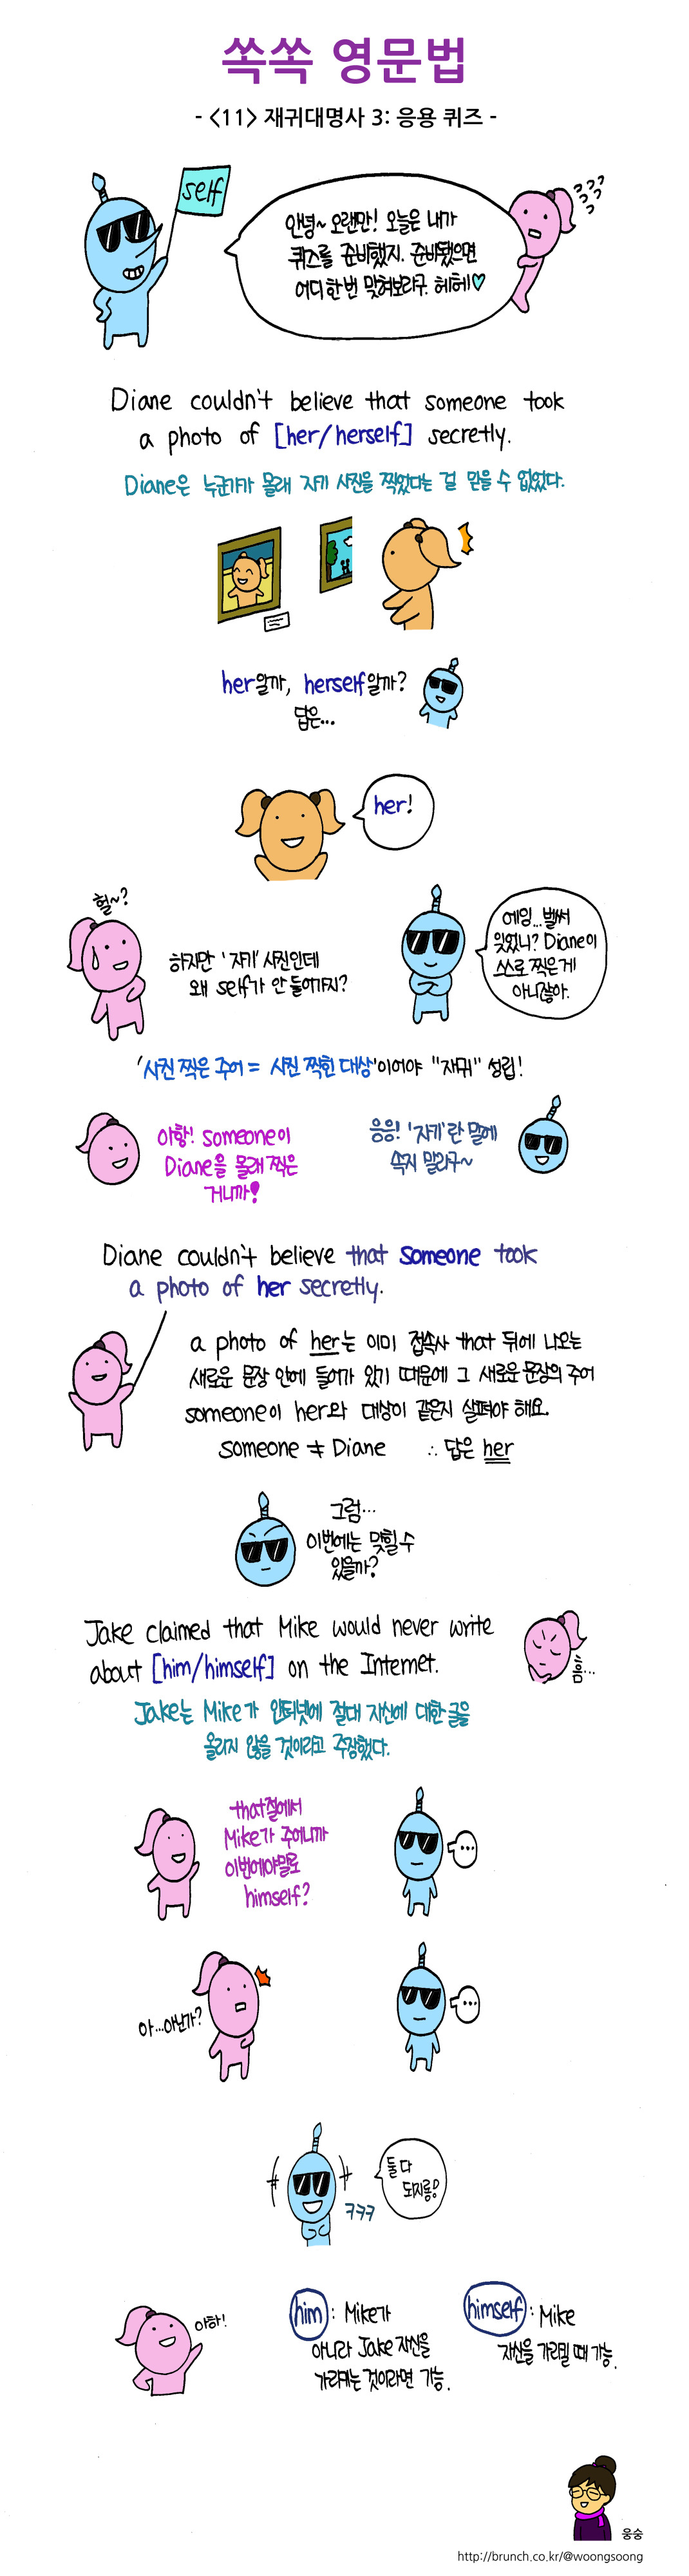 쏙쏙 영문법
- <11> 재귀대명사 3: 응용 퀴즈 -
self
안녕~ 오랜만! 오늘은 내가
퀴즈를 준비했지. 준비됐으면
어디 한번 맞혀보라구. 헤헤♡
Diane couldn't believe that someone took
a photo of [her/herself] secretly.
Diane은 누군가가 몰래 자기 사진을 찍었다는 걸 믿을 수 없었다.
her일까, herself일까?
답은...
her!
헐~?
하지만 '자기' 사진인데
왜 self가 안 들어가지?
에잉... 벌써
잊었니? Diane이
스스로 찍은게
아니잖아.
'사진 찍은 주어 = 사진 찍힌 대상'이어야 "재귀" 성립!
아항! someone이
Diane을 몰래 찍은
거니까!
응응! '자기'란 말에
속지 말라구~
Diane couldn't believe that someone took
a photo of her secretly.
a photo of her는 이미 접속사 that 뒤에 나오는
새로운 문장 안에 들어가 있기 때문에 그 새로운 문장의 주어
someone이 her와 대상이 같은지 살펴야 해요.
someone ≠ Diane ∴ 답은 her
그럼...
이번에는 맞힐 수
있을까?
Jake claimed that Mike would never write
about [him/himself] on the Internet.
흠...
Jake는 Mike가 인터넷에 절대 자신에 대한 글을
올리지 않을 것이라고 주장했다.
that절에서
Mike가 주어니까
이번에야말로
himself?
...
아...아닌가?
...
둘 다
되지롱!
ㅋㅋㅋ
아하!
him : Mike가
아니라 Jake 자신을
가리키는 것이라면 가능.
himself : Mike
자신을 가리킬 때 가능.
웅숭
http://brunch.co.kr/@woongsoong